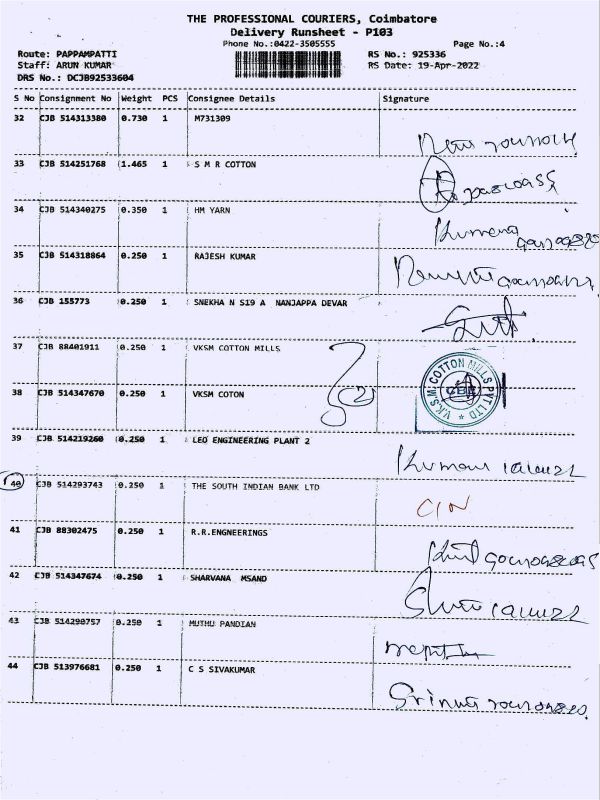 THE PROFESSIONAL COURIERS, Coimbatore
Delivery Runsheet - P103
Phone No.:0422-3505555 Page No.:4
Route: PAPPAMPATTI RS No.: 925336
Staff: ARUN KUMAR RS Date: 19-Apr-2022
DRS No.: DCJB92533604
S No Consignment No Weight PCS Consignee Details Signature
32 CJB 514313380 0.730 1 M731309
33 CJB 514251768 1.465 1 S M R COTTON
34 CJB 514340275 0.350 1 HM YARN
Kumar
35 CJB 514318864 0.250 1 RAJESH KUMAR
36 CJB 155773 0.250 1 SNEKHA N S19 A NANJAPPA DEVAR
37 CJB 88401911 0.250 1 VKSM COTTON MILLS
2
V.K.S.M. COTTON MILLS PVT LTD
CBE
38 CJB 514347670 0.250 1 VKSM COTON
39 CJB 514219260 0.250 1 LEO ENGINEERING PLANT 2
Kumar
40 CJB 514293743 0.250 1 THE SOUTH INDIAN BANK LTD
CIN
41 CJB 88302475 0.250 1 R.R.ENGNEERINGS
42 CJB 514347674 0.250 1 SHARVANA MSAND
43 CJB 514290757 0.250 1 MUTHU PANDIAN
44 CJB 513976681 0.250 1 C S SIVAKUMAR